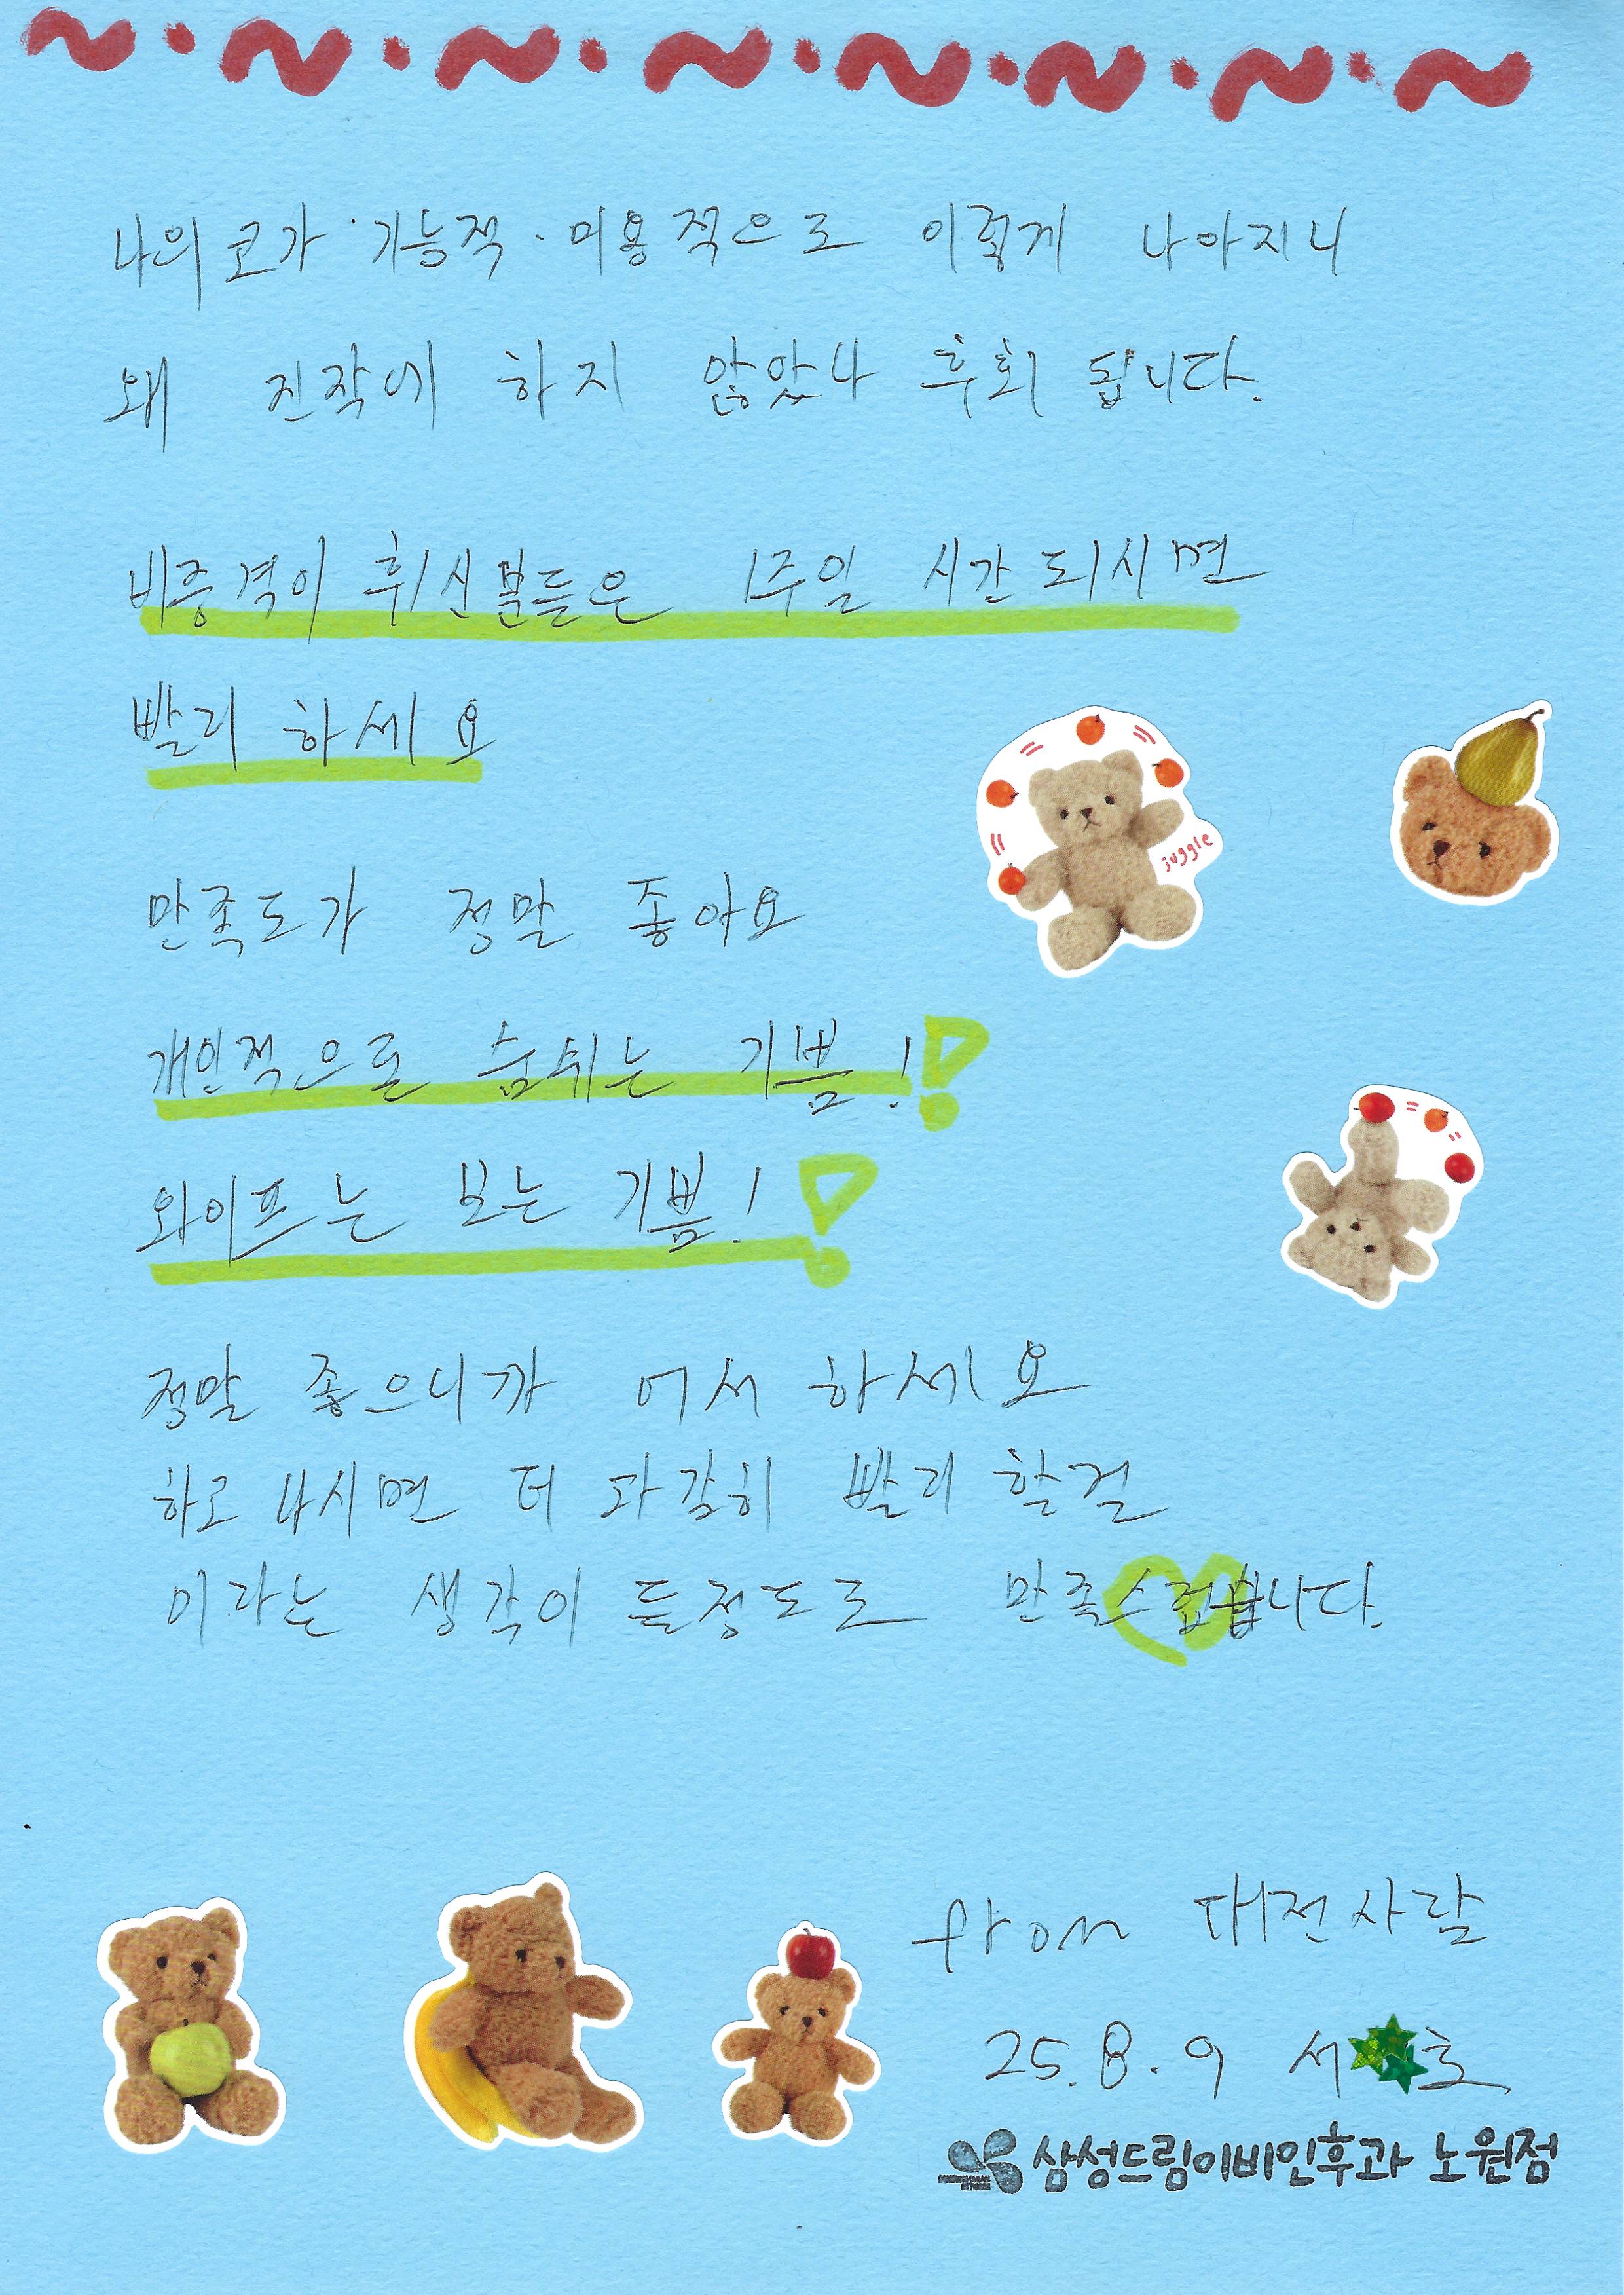 나의 코가 기능적·미용적으로 이렇게 나아지니
왜 진작에 하지 않았나 후회 됩니다.
비중격이 휘신분들은 1주일 시간되시면
빨리 하세요
만족도가 정말 좋아요
juggle
개인적으로 숨쉬는 기쁨!
와이프는 보는 기쁨!
정말 좋으니까 어서 하세요
하고 나시면 더 과감히 빨리 할걸
이라는 생각이 들정도로 만족스럽습니다.
from 대전사람
25.8.9 서 호
삼성드림이비인후과 노원점